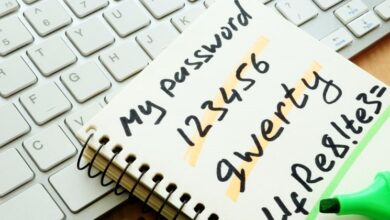 My password
123456
qwerty
Hf Re8!te3=